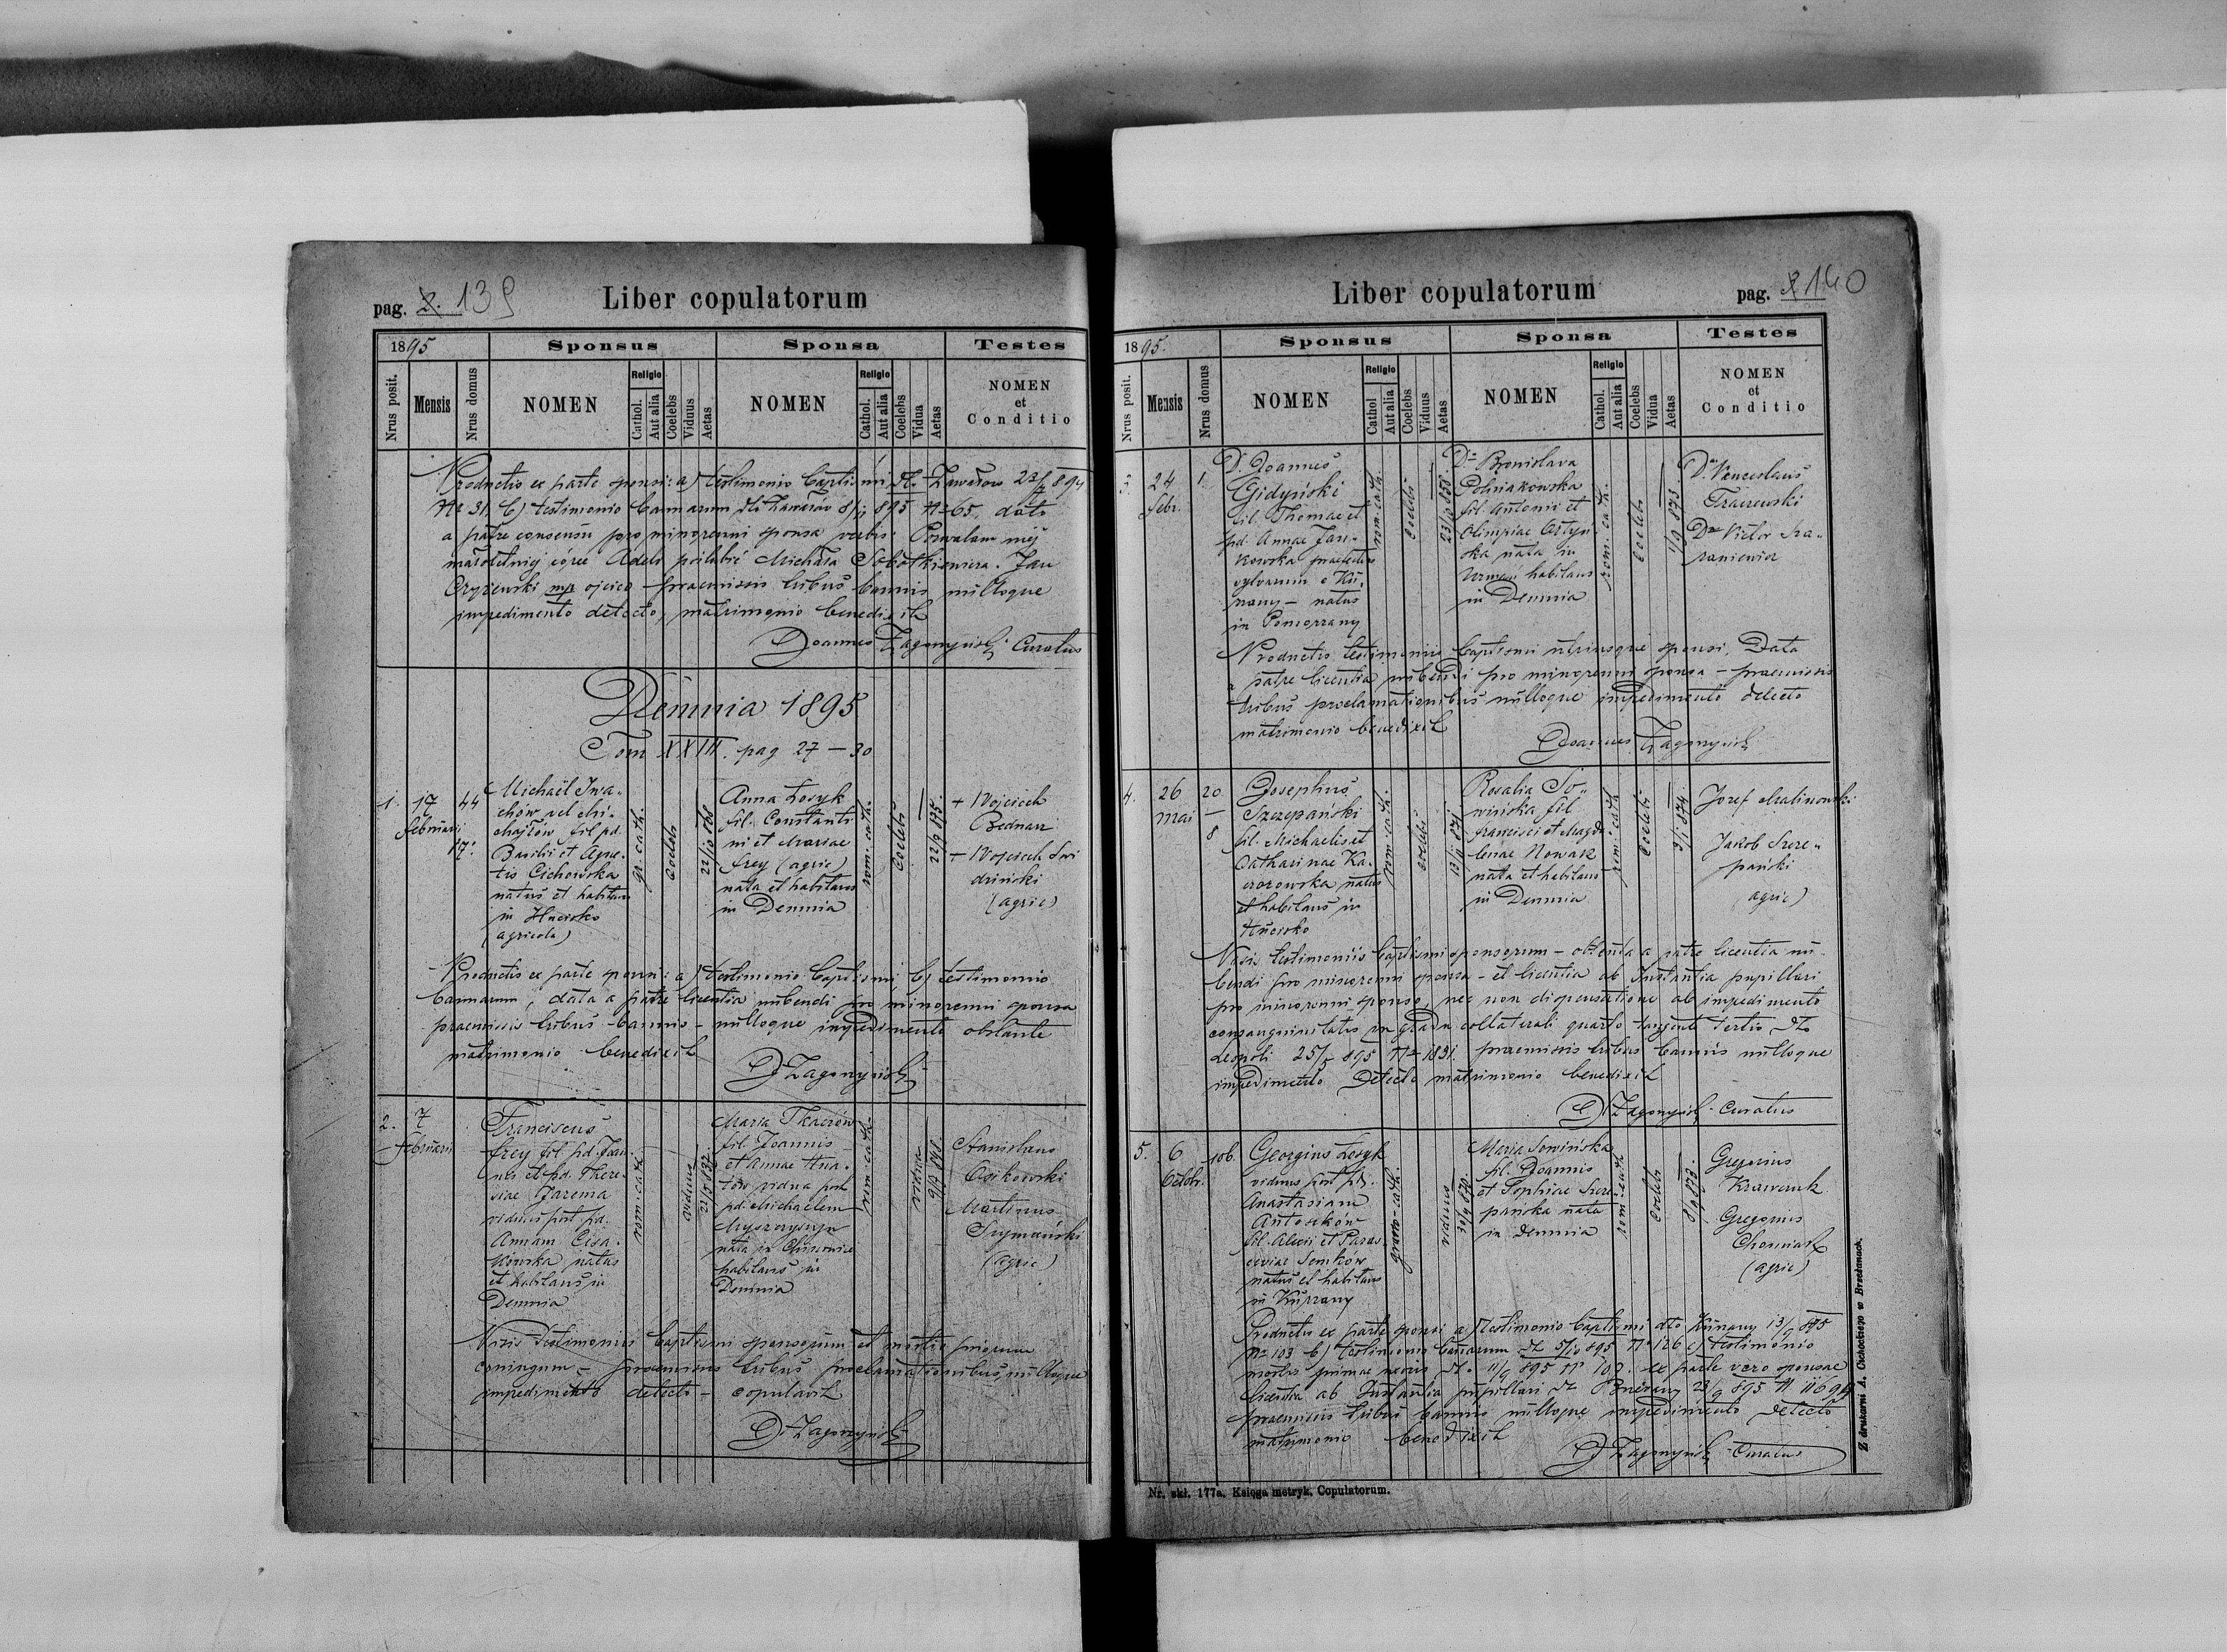 pag. 2. 139
Liber copulatorum
1895
Sponsus
Sponsa
Testes
Nrus posit.
Mensis
Nrus domus
NOMEN
Religio
Cathol.
Aut alia
Coelebs
Viduus
Aetas
NOMEN
Religio
Cathol.
Aut alia
Coelebs
Vidua
Aetas
NOMEN
et
Conditio
Productis ex parte sponsi: a) testimonio baptismi dt. Zawałow
No 31. b) testimonio bannorum dto Zawałów 895 No 65. data
a patre consensu pro minorenni sponsa verbis: Pozwalam mej
małoletniej córce Adeli poślubić Michała Sobotkiewicza. Jan
Czyżewski mp ojciec - praemissis tribus bannis nulloque
impedimento detecto, matrimonio benedixit
Joannes Curatus
Demnia 1895
Tom XXIII. pag 27 - 30
1. 17 Februarii 17. 44
Michaël Iwa-
chów vel Mi-
chajłów fil pd.
Basilii et Agne-
tis Cichowska
natus et habitans
in Hucisko
(agricola)
gr. cath.
coelebs
22/10 868
Anna Łosyk
fil. Constanti
ni et Mariae
Frey (agric)
nata et habitans
in Demnia
rom. cath.
coelebs
22/9 875.
+ Wojciech
Bednarz
+ Wojciech Świ
drinski
(agric)
Productis ex parte sponsi: a) testimonio baptismi b) testimonio
bannorum, data a patre licentia nubendi pro minorenni sponsa
praemissis tribus bannis - nulloque impedimento obstante
matrimonio benedixit
2. 7 Februarii
Franciscus
Frey fil pd. Joan-
nis et pd. There-
siae Jarema
viduus post pd.
Annam
natus
et habitans in
Demnia
rom. cath
viduus
22/5 837
Maria Tkaczów
fil. Joannis
et Annae Hna-
tów vidua post
pd. Michaelem
nata in
habitans in
Demnia
rom. cath.
vidua
9/3 848.
Stanislaus
Martinus
Szymański
(agric)
Visis testimoniis baptismi sponsorum et mortis priorum
coniugum - praemissis tribus proclamationibus, nulloque
impedimento detecto - copulavit
pag. 140
Liber copulatorum
1895.
Sponsus
Sponsa
Testes
Nrus posit.
Mensis
Nrus domus
NOMEN
Religio
Cathol
Aut alia
Coelebs
Viduus
Aetas
NOMEN
Religio
Cathol.
Aut alia
Coelebs
Vidua
Aetas
NOMEN
et
Conditio
3. 24 Febr. 1.
D. Joannes
Gidyński
fil. Thomae et
pd. Annae Jan-
kowska praefectus
sylvarum e Ku-
rzany - natus
in Pomorzany
rom. cath.
coelebs
Dna Bronislava
Polniakowska
fil. Antonii et
Olimpiae
ska nata in
habitans
in Demnia
rom. cath.
coelebs
1/9 873
Dnus Venceslaus
Traczewski
Dnus Victor Sza-
raniewicz
Productis testimoniis baptismi utriusque sponsi, Data
a patre licentia nubendi pro minorenni sponsa - praemissis
tribus proclamationibus nulloque impedimento detecto
matrimonio benedixit
Joannes
4. 26 mai 20 - 8
Josephus
Szczepański
fil. Michaelis et
Catharinae Ka-
czorowska natus
et habitans in
Hucisko
rom. cath.
coelebs
Rosalia So-
wińska fil
Francisci et Magda-
lenae Nowak
nata et habitans
in Demnia
rom. cath
coelebs
3/1 874
Josef Malinowski
Jakob Szcze-
pański
agric)
Visis testimoniis baptismi sponsorum - obtenta a patre licentia nu-
bendi pro minorenni sponsa - et licentia ab Instantia pupillari
pro minorenni sponso, nec non dispensatione ab impedimento
consanguinitatis in gradu collaterali quarto tangente tertio dto
Leopoli 25/5 895 No 1831. praemissis tribus bannis nulloque
impedimento detecto matrimonio benedixit
Curatus
5. 6 Octobr. 106.
Georgius Łosyk
viduus post pd.
Anastasiam
Antosków
fil. Alexii et Paras-
ceviae Semków
natus et habitans
in Kurzany
graeco-cath.
viduus
30/9 870.
Maria Sowińska
fil. Joannis
et Sophiae Szcze-
pańska nata
in Demnia
rom. cath
coelebs
8/9 873.
Gregorius
Krawczuk
Gregorius
Chomiak
(agric)
Productis ex parte sponsi a) testimonio baptismi dto Kurzany 13/9 895
No 103 b) testimonio bannorum dt 5/10 895 No 126 c) testimonio
mortis primae uxoris dt. 11/9 895 No 102. ex parte vero sponsae
licentia ab Instantia pupillari dt Brzeżany 23/9 895 N. 11694
praemissis tribus bannis nulloque impedimento detecto
matrimonio benedixit
Curatus
Nr. skł. 177a. Księga metryk. Copulatorum.
Z drukarni A. Cichockiego w Brzeżanach.